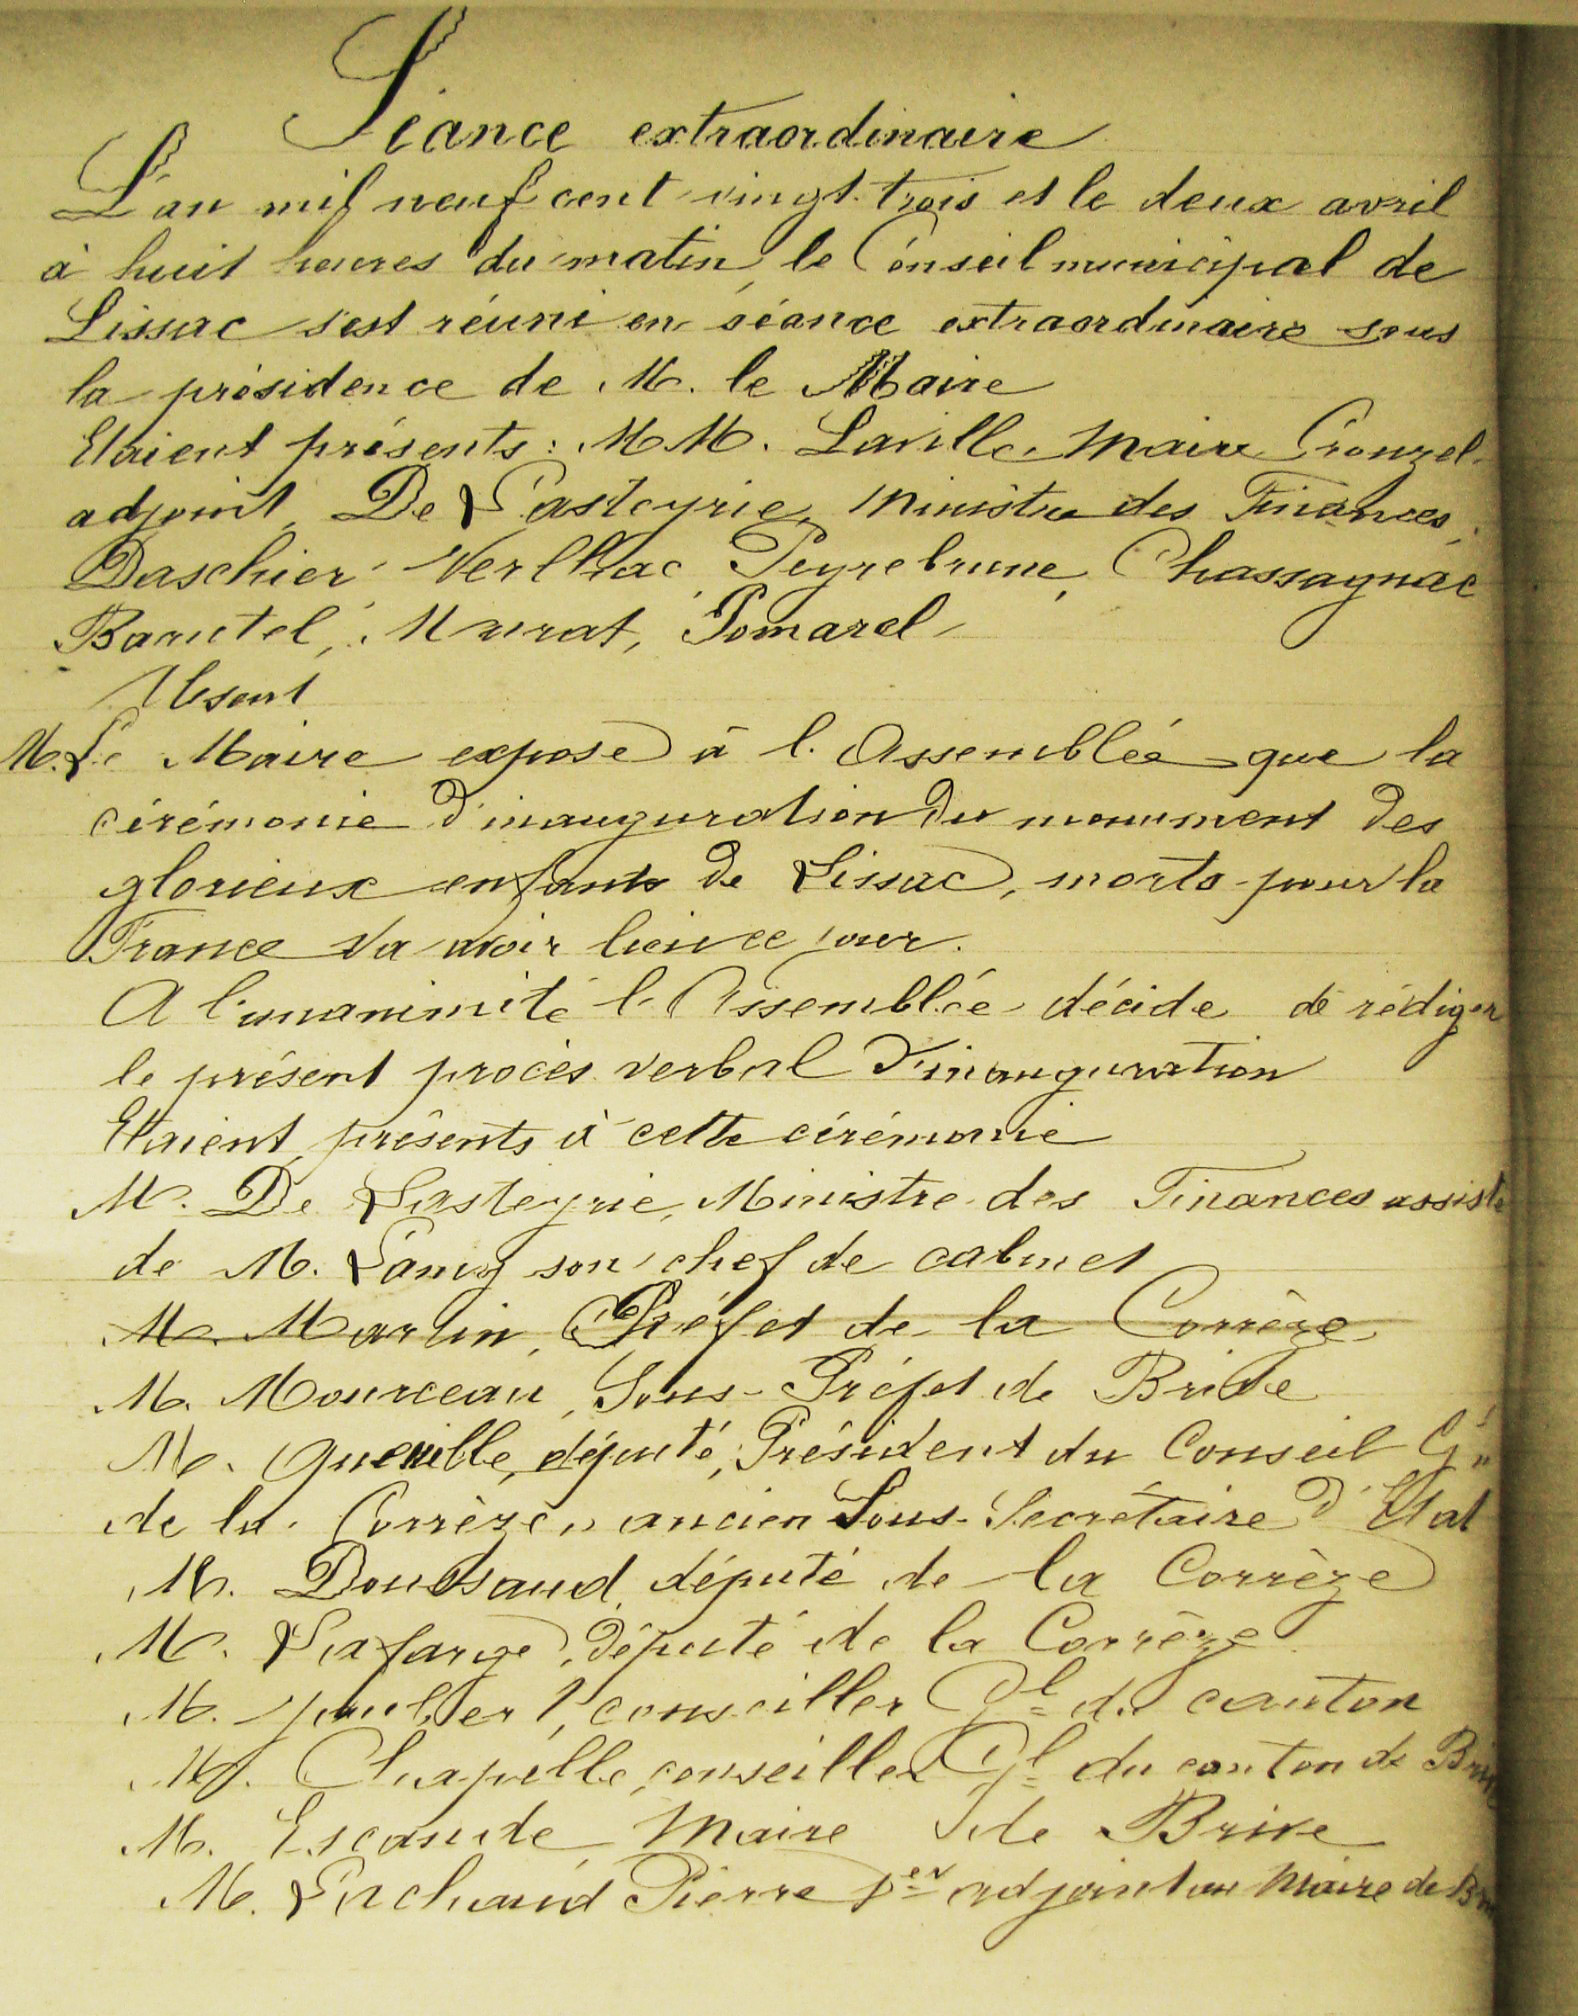 Séance extraordinaire
L'an mil neuf cent vingt-trois et le deux avril
à huit heures du matin, le Conseil municipal de
Lissac s'est réuni en séance extraordinaire sous
la présidence de M. le Maire
Etaient présents : M M. Laville Maire Crouzel
adjoint, De Lasteyrie, Ministre des Finances,
Daschier, Verlhac, Peyrebrune, Chassagnac
Barutel, Murat, Pomarel
Absent
M. Le Maire expose à l'Assemblée que la
cérémonie d'inauguration du monument des
glorieux enfants de Lissac, morts pour la
France va avoir lieu ce jour.
A l'unanimité l'Assemblée décide de rédiger
le présent procès verbal d'inauguration
Etaient présents à cette cérémonie
M. De Lasteyrie, Ministre des Finances assisté
de M. Lamy son chef de cabinet
M. Martin, Préfet de la Corrèze
M. Mourceau, Sous-Préfet de Brive
M. Queuille, député, Président du Conseil Gn
de la Corrèze, ancien Sous-Secrétaire d'Etat
M. Doussaud, député de la Corrèze
M. Lafarge, député de la Corrèze
M. Joubert, conseiller Gl du canton
M. Chapelle, conseiller Gl du canton de Brive
M. Escande Maire de Brive
M. Lachaud Pierre 1er adjoint au Maire de